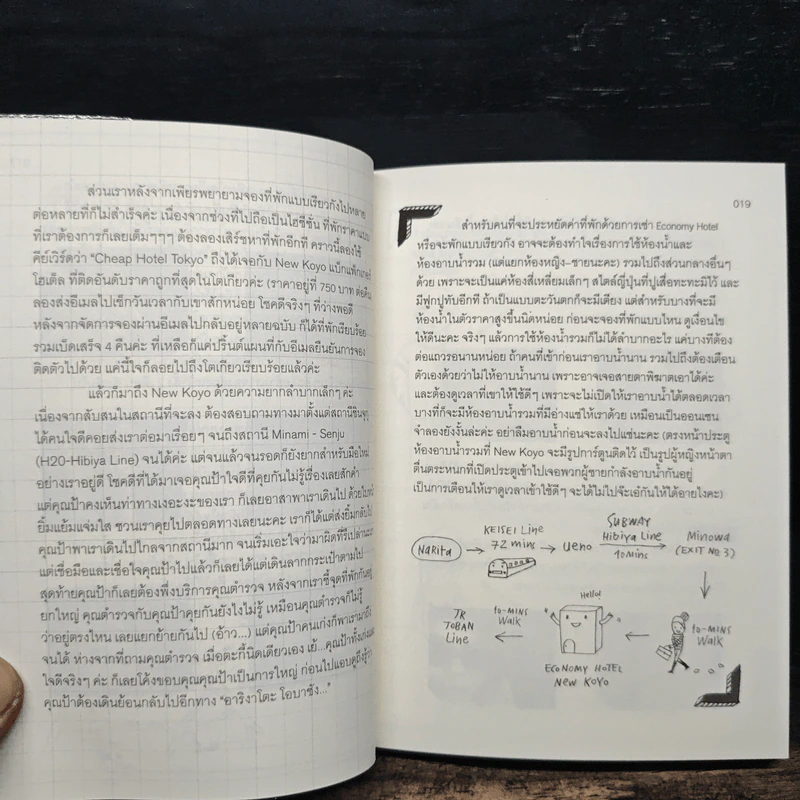 ส่วนเราหลังจากเพียรพยายามจองที่พักแบบเรียวกังไปหลาย
ต่อหลายที่ก็ไม่สำเร็จค่ะ เนื่องจากช่วงที่ไปถือเป็นไฮซีซั่น ที่พักราคาแบบ
ที่เราต้องการก็เลยเต็มๆๆๆ ต้องลองเสิร์ชหาที่พักอีกที คราวนี้ลองใช้
คีย์เวิร์ดว่า "Cheap Hotel Tokyo" ถึงได้เจอกับ New Koyo แบ็กแพ็กเกอร์
โฮเต็ล ที่ติดอันดับราคาถูกที่สุดในโตเกียวค่ะ (ราคาอยู่ที่ 750 บาท ต่อคืน
ลองส่งอีเมลไปเช็กวันเวลากับเขาสักหน่อย โชคดีจริงๆ ที่ว่างพอดี
หลังจากจัดการจองผ่านอีเมลไปกลับอยู่หลายฉบับ ก็ได้ที่พักเรียบร้อย
รวมเบ็ดเสร็จ 4 คืนค่ะ ที่เหลือก็แค่ปริ้นต์แผนที่กับอีเมลยืนยันการจอง
ติดตัวไปด้วย แค่นี้ใจก็ลอยไปถึงโตเกียวเรียบร้อยแล้วค่ะ
แล้วก็มาถึง New Koyo ด้วยความยากลำบากเล็กๆ ค่ะ
เนื่องจากสับสนในสถานีที่จะลง ต้องสอบถามทางมาตั้งแต่สถานีชินจูกุ
ได้คนใจดีคอยส่งเราต่อมาเรื่อยๆ จนถึงสถานี Minami - Senju
(H20-Hibiya Line) จนได้ค่ะ แต่จนแล้วจนรอดก็ยังยากสำหรับมือใหม่
อย่างเราอยู่ดี โชคดีที่ได้มาเจอคุณป้าใจดีที่คุยกันไม่รู้เรื่องเลยสักคำ
แต่คุณป้าคงเห็นท่าทางเงอะงะของเรา ก็เลยอาสาพาเราเดินไป ด้วยใบหน้า
ยิ้มแย้มแจ่มใส ชวนเราคุยไปตลอดทางเลยนะคะ เราก็ได้แต่ส่งยิ้มกลับไป
คุณป้าพาเราเดินไปไกลจากสถานีมาก จนเริ่มเอะใจว่ามาผิดที่รึเปล่านะคะ
แต่เชื่อมือและเชื่อใจคุณป้าไปแล้วก็เลยได้แต่เดินลากกระเป๋าตามไป
สุดท้ายคุณป้าก็เลยต้องพึ่งบริการคุณตำรวจ หลังจากเราชี้จุดที่พักกันอยู่
ยกใหญ่ คุณตำรวจกับคุณป้าคุยกันยังไงไม่รู้ เหมือนคุณตำรวจก็ไม่รู้
ว่าอยู่ตรงไหน เลยแยกย้ายกันไป (อ้าว...) แต่คุณป้าคนเก่งก็พาเรามาถึง
จนได้ ห่างจากที่ถามคุณตำรวจ เมื่อตะกี้นิดเดียวเอง เย้...คุณป้าทั้งเก่งและ
ใจดีจริงๆ ค่ะ ก็เลยโค้งขอบคุณคุณป้าเป็นการใหญ่ ก่อนไปแอบดูถึงรู้ว่า
คุณป้าต้องเดินย้อนกลับไปอีกทาง "อาริงาโตะ โอบาซัง..."
019
สำหรับคนที่จะประหยัดค่าที่พักด้วยการเช่า Economy Hotel
หรือจะพักแบบเรียวกัง อาจจะต้องทำใจเรื่องการใช้ห้องน้ำและ
ห้องอาบน้ำรวม (แต่แยกห้องหญิง-ชายนะคะ) รวมไปถึงส่วนกลางอื่นๆ
ด้วย เพราะจะเป็นแค่ห้องสี่เหลี่ยมเล็กๆ สไตล์ญี่ปุ่นที่ปูเสื่อทะทะมิไว้ และ
มีฟูกปูทับอีกที ถ้าเป็นแบบตะวันตกก็จะมีเตียง แต่สำหรับบางที่จะมี
ห้องน้ำในตัวราคาสูงขึ้นนิดหน่อย ก่อนจะจองที่พักแบบไหน ดูเงื่อนไข
ให้ดีนะคะ จริงๆ แล้วการใช้ห้องน้ำรวมก็ไม่ได้ลำบากอะไร แค่บางทีต้อง
ต่อแถวรอนานหน่อย ถ้าคนที่เข้าก่อนเราอาบน้ำนาน รวมไปถึงต้องเตือน
ตัวเองด้วยว่าไม่ให้อาบน้ำนาน เพราะอาจเจอสายตาพิฆาตเอาได้ค่ะ
และต้องดูเวลาที่เขาให้ใช้ดีๆ เพราะจะไม่เปิดให้เราอาบน้ำได้ตลอดเวลา
บางที่ก็จะมีห้องอาบน้ำรวมที่มีอ่างแช่ให้เราด้วย เหมือนเป็นออนเซน
จำลองยังงั้นล่ะค่ะ อย่าลืมอาบน้ำก่อนจะลงไปแช่นะคะ (ตรงหน้าประตู
ห้องอาบน้ำรวมที่ New Koyo จะมีรูปการ์ตูนติดไว้ เป็นรูปผู้หญิงหน้าตา
ตื่นตระหนกที่เปิดประตูเข้าไปเจอพวกผู้ชายกำลังอาบน้ำกันอยู่
เป็นการเตือนให้เราดูเวลาเข้าใช้ดีๆ จะได้ไม่ไปจ๊ะเอ๋กันให้ได้อายไงคะ)
Narita
KEISEI Line
72 mins
ueno
SUBWAY
Hibiya Line
10mins
Minowa
(EXIT No 3)
10-MINS
Walk
Hello!
ECONOMY HOTEL
NEW KOYO
10-MINS
Walk
JR
JOBAN
Line